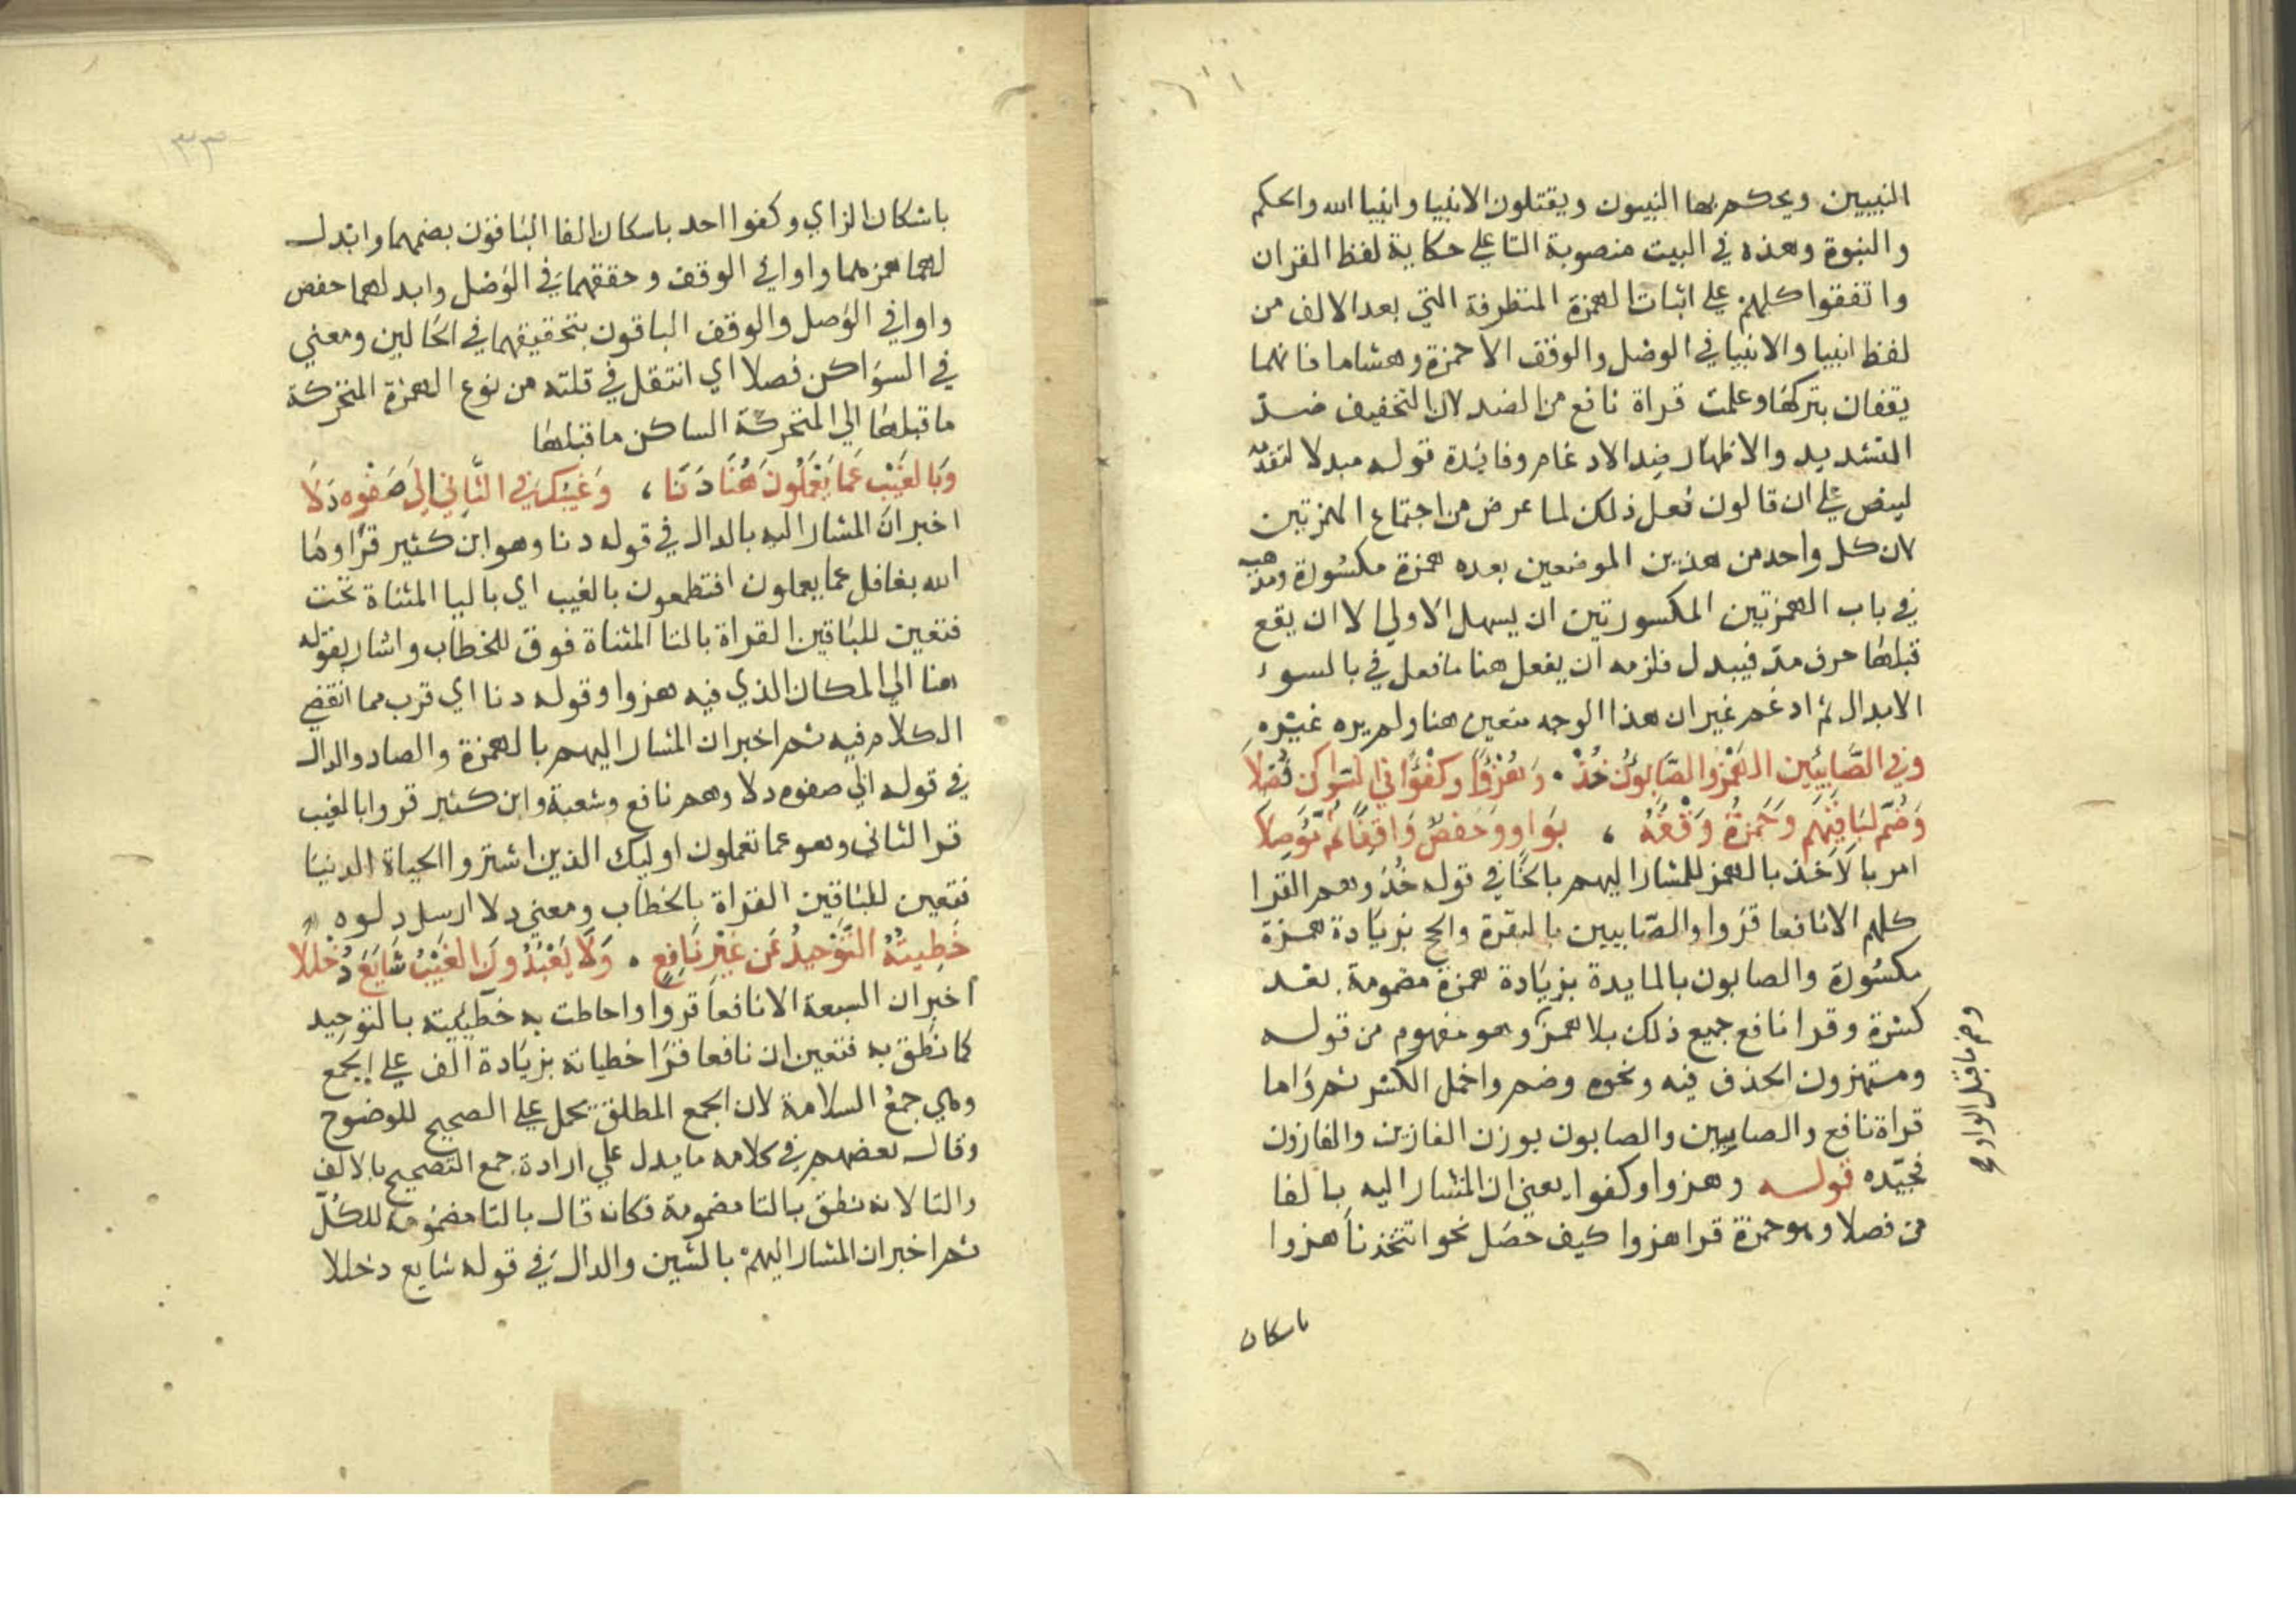 النبيين ويحكم بها النبيون ويقتلون الانبيا وانبيا الله والحكم
والنبوة وهذه في البيت منصوبة التا علي حكاية لفظ القران
واتفقوا كلهم علي اثبات الهمزة المتطرفة التي بعد الالف من
لفظ انبيا والانبيا في الوصل والوقف الا حمزة وهشاما فانهما
يقفان بتركها وعلمت قراة نافع من الضد لان التخفيف ضد
التشديد والاظهار ضد الادغام وفايدة قوله مبدلا لتقدمه
لينص علي ان قالون فعل ذلك لما عرض من اجتماع الهمزتين
لان كل واحد من هذين الموضعين بعده همزة مكسورة ومذهبه
في باب الهمزتين المكسورتين ان يسهل الاولي الا ان يقع
قبلها حرف مد فيبدل فلزمه ان يفعل هنا ما فعل في بالسوء
الابدال ثم ادغم غير ان هذا الوجه متعين هنا ولم يره غيره
وَفي الصَّابِئِين الهَمْزُ والصَّابِؤُن خُذْ . وَهُزْؤًا وَكُفْؤًا في السَّواكن فُصِّلَا
وَضُمَّ لبَاقِيْهِم وَحَمزةُ وَقْفُهُ ، بوَاوٍ وَحَفصٌ وَاقِفًا ثُمَّ مُوْصِلَا
امر بالاخذ بالهمز للمشار اليهم بالخا في قوله خُذ وهم القرا
كلهم الا نافعا قرَوا والصّابيين بالبقرة والحج بزيادة همزة
مكسُورة والصابون بالمايدة بزيَادة همزة مضمومة بعد
كسرة وقرا نافع جميع ذلك بلا همزٍ وهو مفهوم من قوله
ومستهزون الحذف فيه ونحوه وضم واخمل الكسر ثم وَاما
قراة نافع والصابيين والصابون بوزن الغازين والغازون
فجيّده قوله وهزوا وكفوا يعني ان المشار اليه بالفا
من فصلا وهو حمزة قرا هزوا كيف حصَل نحو اتتخذناَ هزوا
وضم ما قبل الواو صح
باسكان
٣٣
باسْكان الزاي وكفوا احد باسكان الفا البَاقون بضمهما وابْدل
لهما همزهما واوا في الوقف وحققهما في الوَصْل وابدلهما حفص
واوا في الوَصل والوقف الباقون بتحقيقهما في الحَالين ومعني
في السوَاكن فصلا اي انتقل في قلته من نوع الهمزة المتحركة
ما قبلها الي المتحركة الساكن ما قبلها
وَبالغَيْب عَما يَعْمَلُونَ هُنَا دَنَا ، وَغَيْبُكَ في الثَّانِي إلى صَفْوِه دَلَا
اخبر انَ المشار اليه بالدال في قوله دنا وهو ابن كثير قرَا ومَا
الله بغافل عما يعملون افتطمعون بالغيب اي باليا المثناة تحت
فتعين للبَاقين القراة بالتا المثناة فوق للخطاب واشار بقوله
هنا الي المكان الذي فيه هزوا وقوله دنا اي قرب مما انقضي
الكلام فيه ثم اخبر ان المشار اليهم بالهمزة والصاد والدال
في قوله الي صفوه دلا وهم نافع وشعبة وابن كثير قروا بالغيب
قرا الثاني وهو عما تعملون اوليك الذين اشتروا الحياة الدنيَا
فتعين للبَاقين القراة بالخطاب ومعني دلا ارسل دلوه
خَطِيئَتُهُ التَّوْحِيدُ عَن غَيْر نَافِعٍ . وَلَا يَعْبُدُونَ الغَيْبُ شَايَعَ دُخْلُلَا
اخبر ان السبعة الا نافعا قروا واحاطت به خطيئيته بالتوحيد
كما نطق به فتعين ان نافعا قرَا خطياته بزيَادة الف علي الجمع
وهي جمعُ السلامة لان الجمع المطلق يحمل علي الصحيح للوضوح
وقال بعضهم في كلامه ما يدل علي ارادة جمع التصحيح بالالف
والتا لانه نطق بالتا مضمومة فكانه قال بالتا مضمُومه للكُلّ
ثم اخبر ان المشار اليهمْ بالشين والدال في قوله شايع دخللا